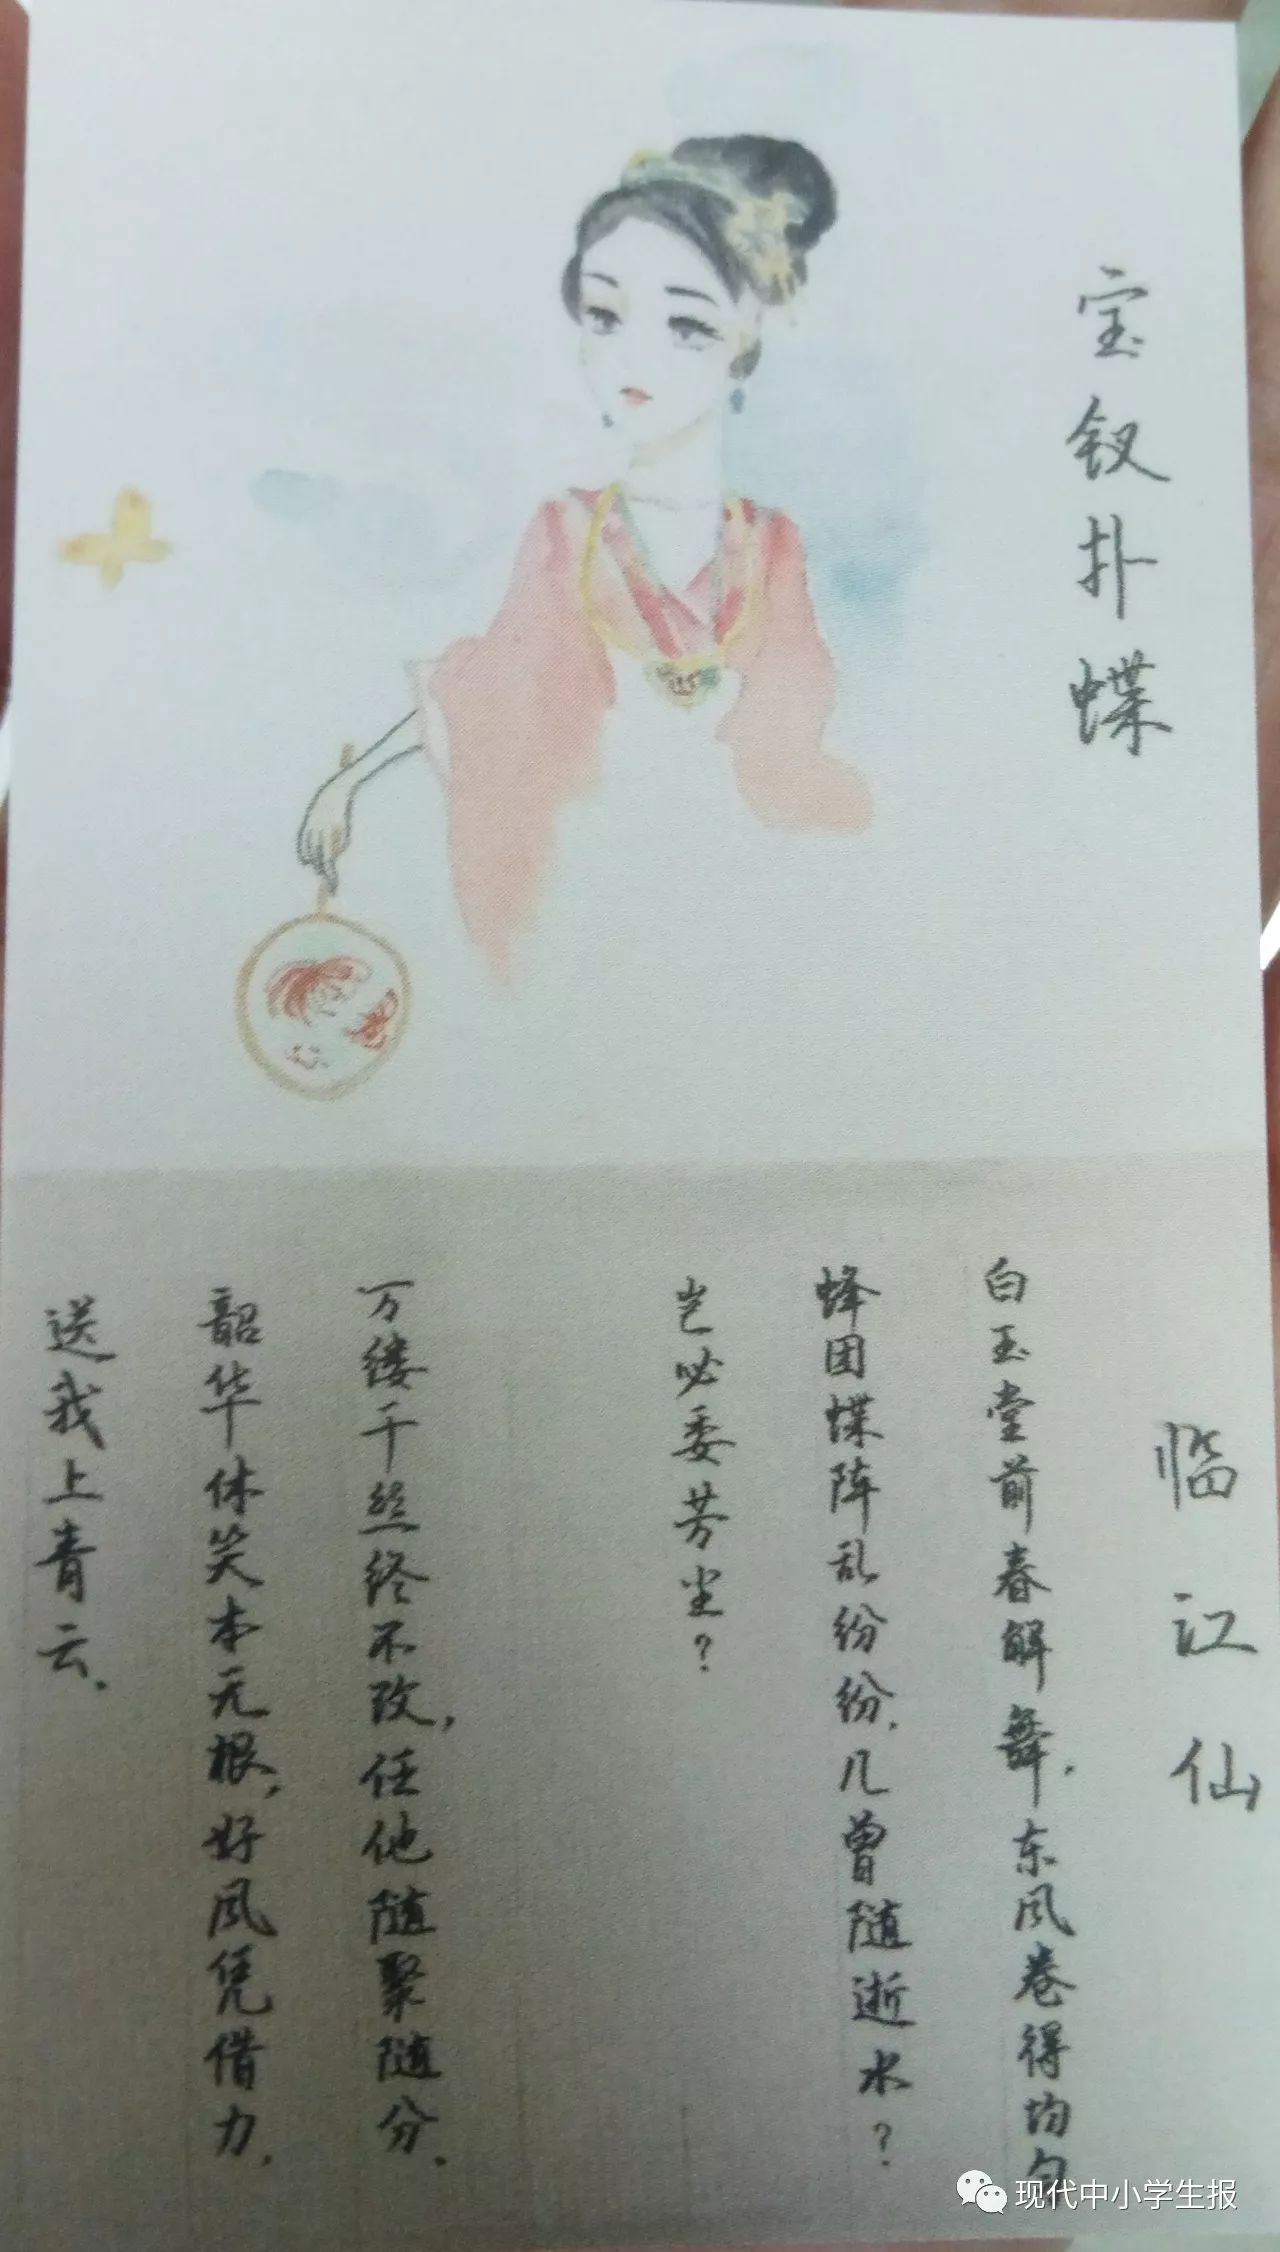 宝钗扑蝶
临江仙
白玉堂前春解舞，东风卷得均匀
蜂团蝶阵乱纷纷，几曾随逝水？
岂必委芳尘？
万缕千丝终不改，任他随聚随分．
韶华休笑本无根，好风凭借力，
送我上青云．
现代中小学生报